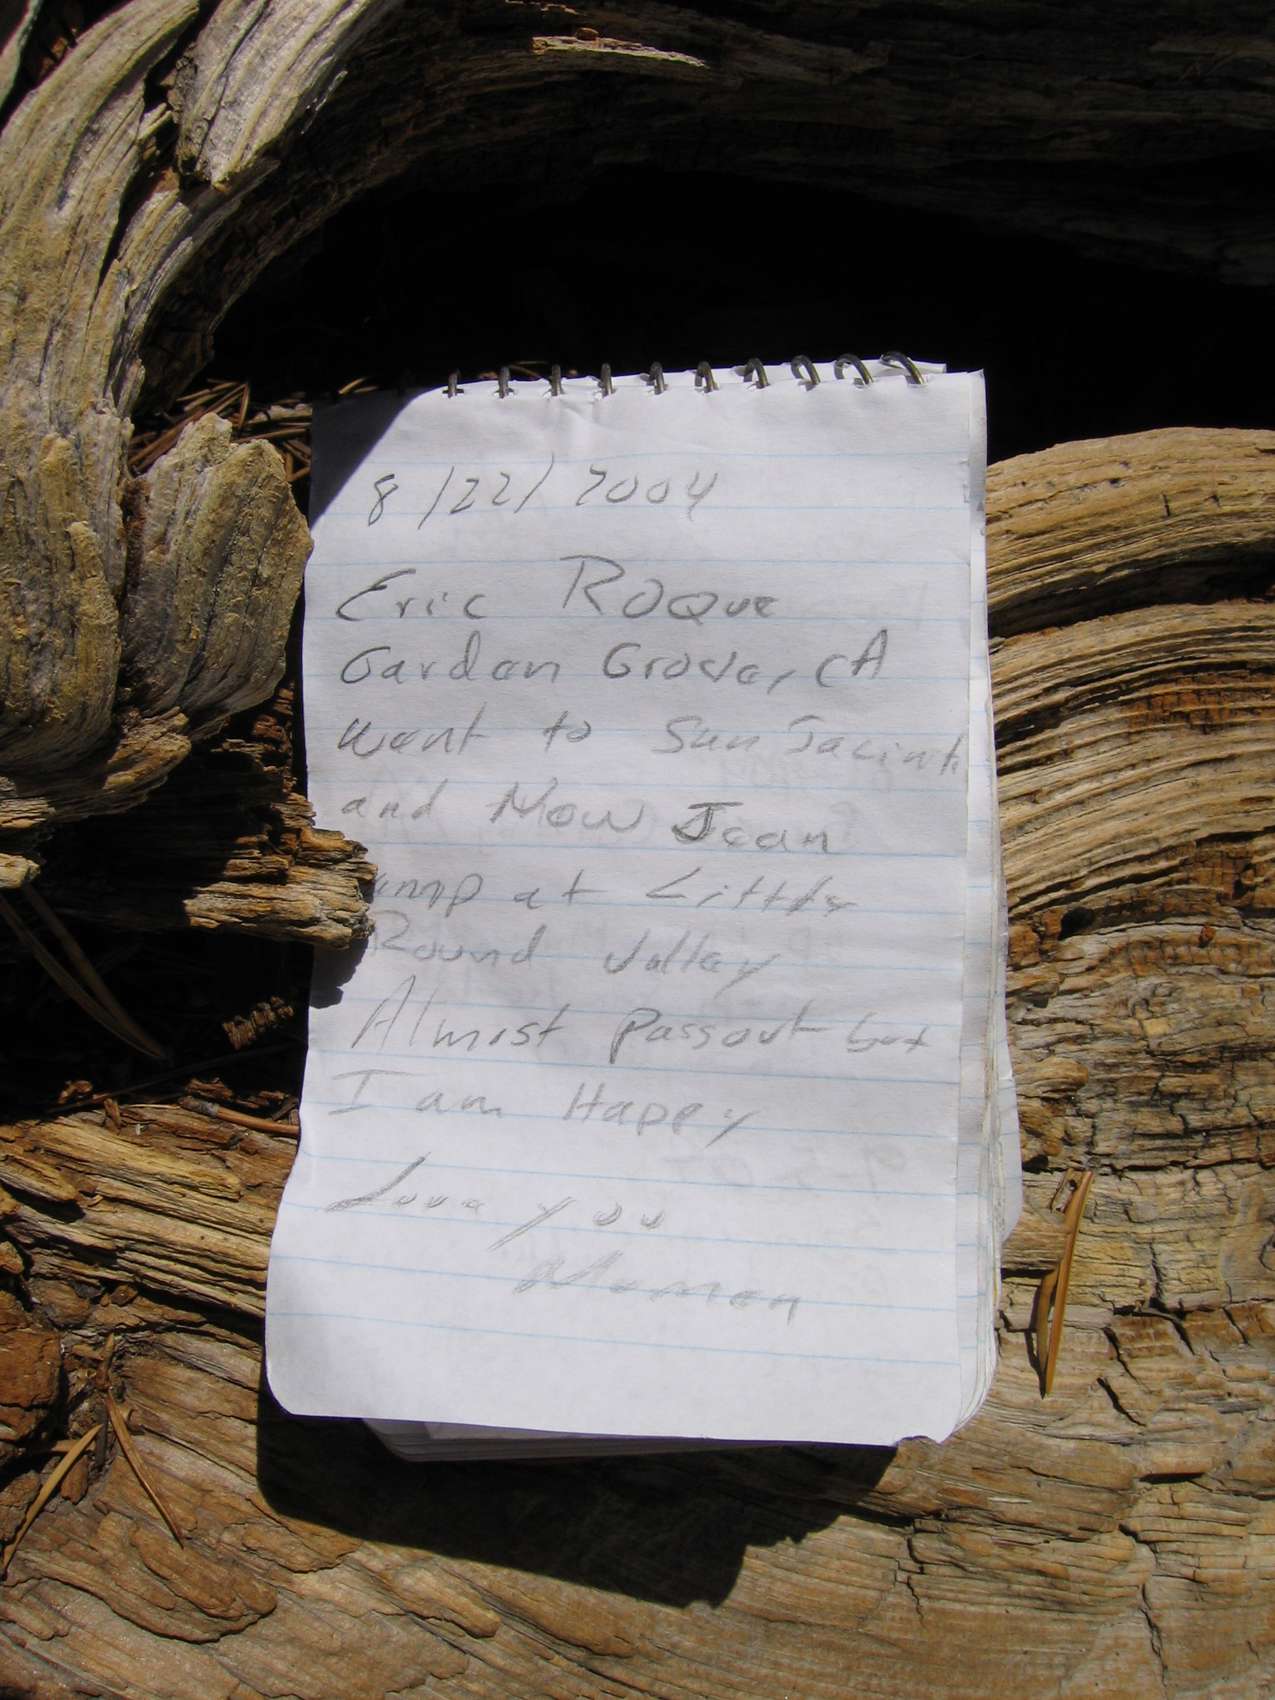 8/22/2004
Eric ROQue
Garden Grove, CA
went to San Jacint
and Now Jean
amp at Little
Round Valley
Almost Passout but
I am Happy
Love you